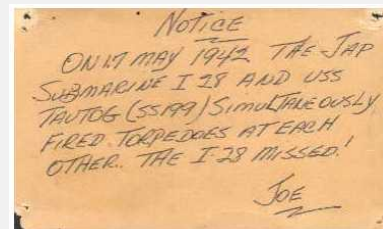 NOTICE
ON 17 MAY 1942 THE JAP
SUBMARINE I 28 AND USS
TAUTOG (SS199) SIMULTANEOUSLY
FIRED TORPEDOES AT EACH
OTHER. THE I-28 MISSED!
JOE